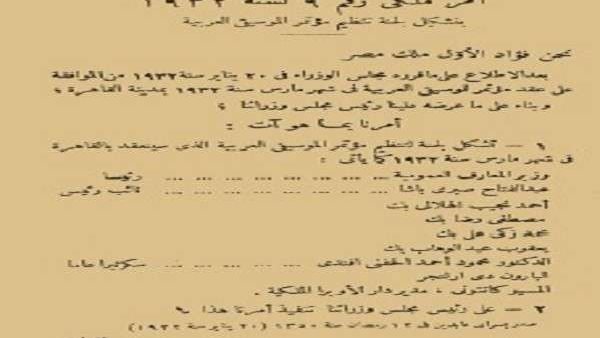 أمر ملكي رقم ٩ لسنة ١٩٣٢
بتشكيل لجنة تنظيم مؤتمر الموسيقى العربية
نحن فؤاد الأول ملك مصر
بعد الاطلاع على ما قرره مجلس الوزراء فى ٢٠ يناير سنة ١٩٣٢ من الموافقة
على عقد مؤتمر للموسيقى العربية فى شهر مارس سنة ١٩٣٢ بمدينة القاهرة ؛
وبناء على ما عرضه علينا رئيس مجلس وزرائنا ؛
أمرنا بما هو آت :
١ — تشكل لجنة لتنظيم مؤتمر الموسيقى العربية الذى سينعقد بالقاهرة
فى شهر مارس سنة ١٩٣٢ كما يأتى :
وزير المعارف العمومية ... ... ... ... ... ... رئيسا
عبد الفتاح صبرى باشا ... ... ... ... ... ... نائب رئيس
أحمد نجيب الهلالى بك
مصطفى رضا بك
محمد زكى على بك
يعقوب عبد الوهاب بك
الدكتور محمود أحمد الحفنى افندى ... ... ... سكرتيرا عاما
البارون دى ارلنجر
المسيو كانتونى ، مدير دار الأوبرا الملكية .
٢ — على رئيس مجلس وزرائنا تنفيذ أمرنا هذا ؟
صدر بسراى عابدين فى ١٢ رمضان سنة ١٣٥٠ (٢٠ يناير سنة ١٩٣٢)